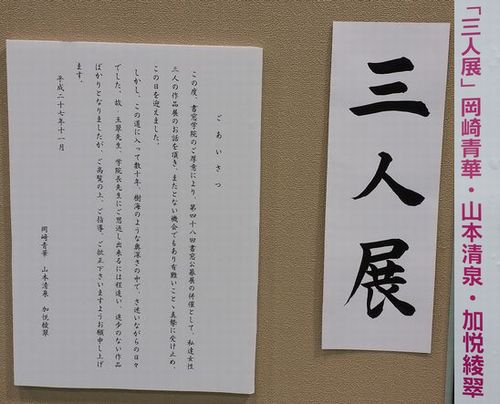 「三人展」岡崎青華・山本清泉・加悦綾翠
三人展
ごあいさつ
この度、書窓学院のご尊考により、第四十八回書窓公募展の併催として、私達女性
三人の作品展のお話を頂き、またとない機会でもあり有難いこと、真摯に受け止め、
この日を迎えました。
しかし、この道に入って数十年、樹海のような奥深さの中で、さ迷いながらの日々
でした。故 玉翠先生、学院長先生にご恩返し出来るには程遠い、進歩のない作品
ばかりとなりましたが、ご高覧の上、ご指導、ご批正下さいますようお願申し上げ
ます。
平成二十七年十一月
岡崎青華 山本清泉 加悦綾翠